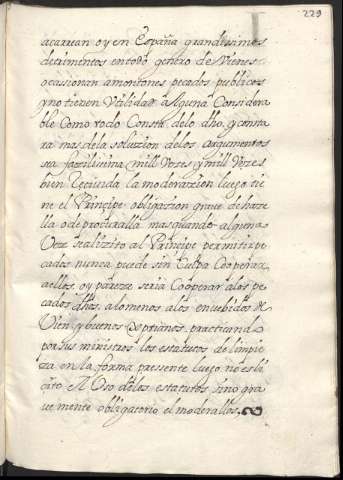 229
acarrean oy en España grandissimos
detrimentos en todo genero de Vienes
ocassionan a montones pecados publicos
y no tienen Utilidad alguna Considera
ble Como todo Consta delo dho, y consta
ra mas dela soluzion delos argumentos
sea fazilissima mill vezes y mill vezes
bien la moderazion luego tie
ne el Principe obligazion grave de haze
lla o de procuralla mas quando alguna
Vez sea lizito al Principe permitir pe
cados nunca puede sin Culpa Cooperar
aellos oy pareze seria Cooperar alos pe
cados dhos, alomenos alos embebidos de
Vien y buenos Xptianos, practicando
por sus ministros los estatutos de limpie
za en la forma pressente luego no es li
cito el Uso delos estatutos sino gra
ve mente obligatorio el moderallos.